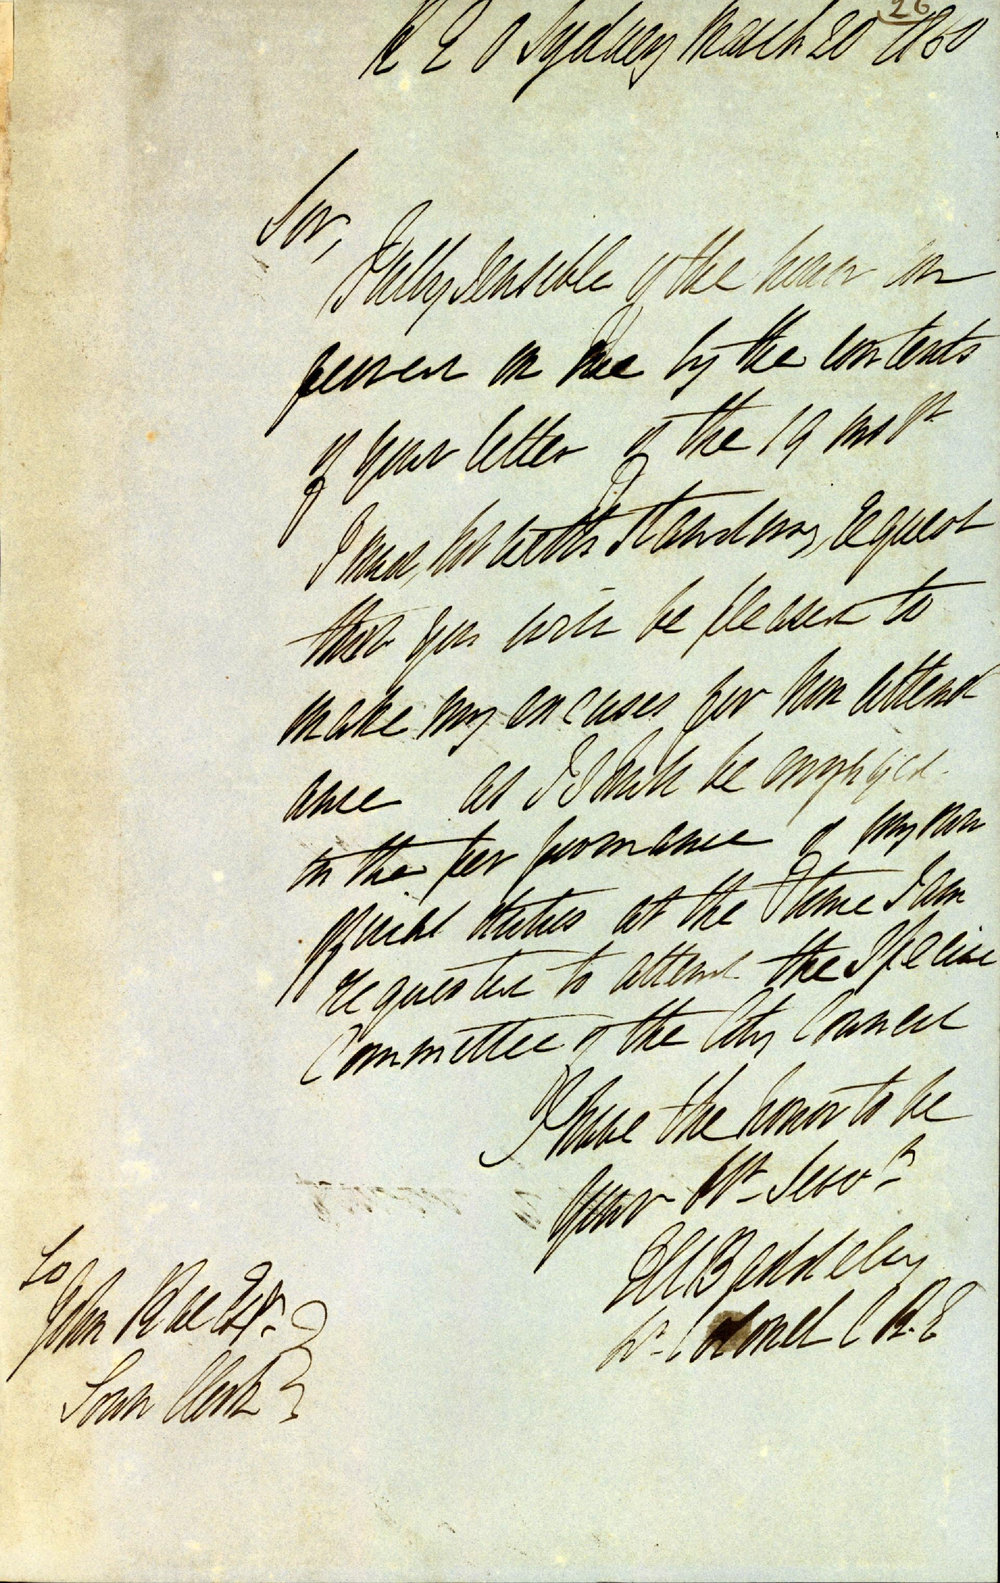 26
R E O Sydney March 20th 1860
Sir,
Fully sensible of the honor con
ferred on me by the contents
of your letter of the 19 inst
I must, notwithstanding, request
that you will be pleased to
make my excuses for non attend
ance as I shall be employed
in the performance of my own
official duties at the time I am
requested to attend the Special
Committee of the City Council
I have the honor to be
Your Obt Servt
Baddeley
Lt. Colonel C R. E
To
John Rae Esqr.
Town Clerk